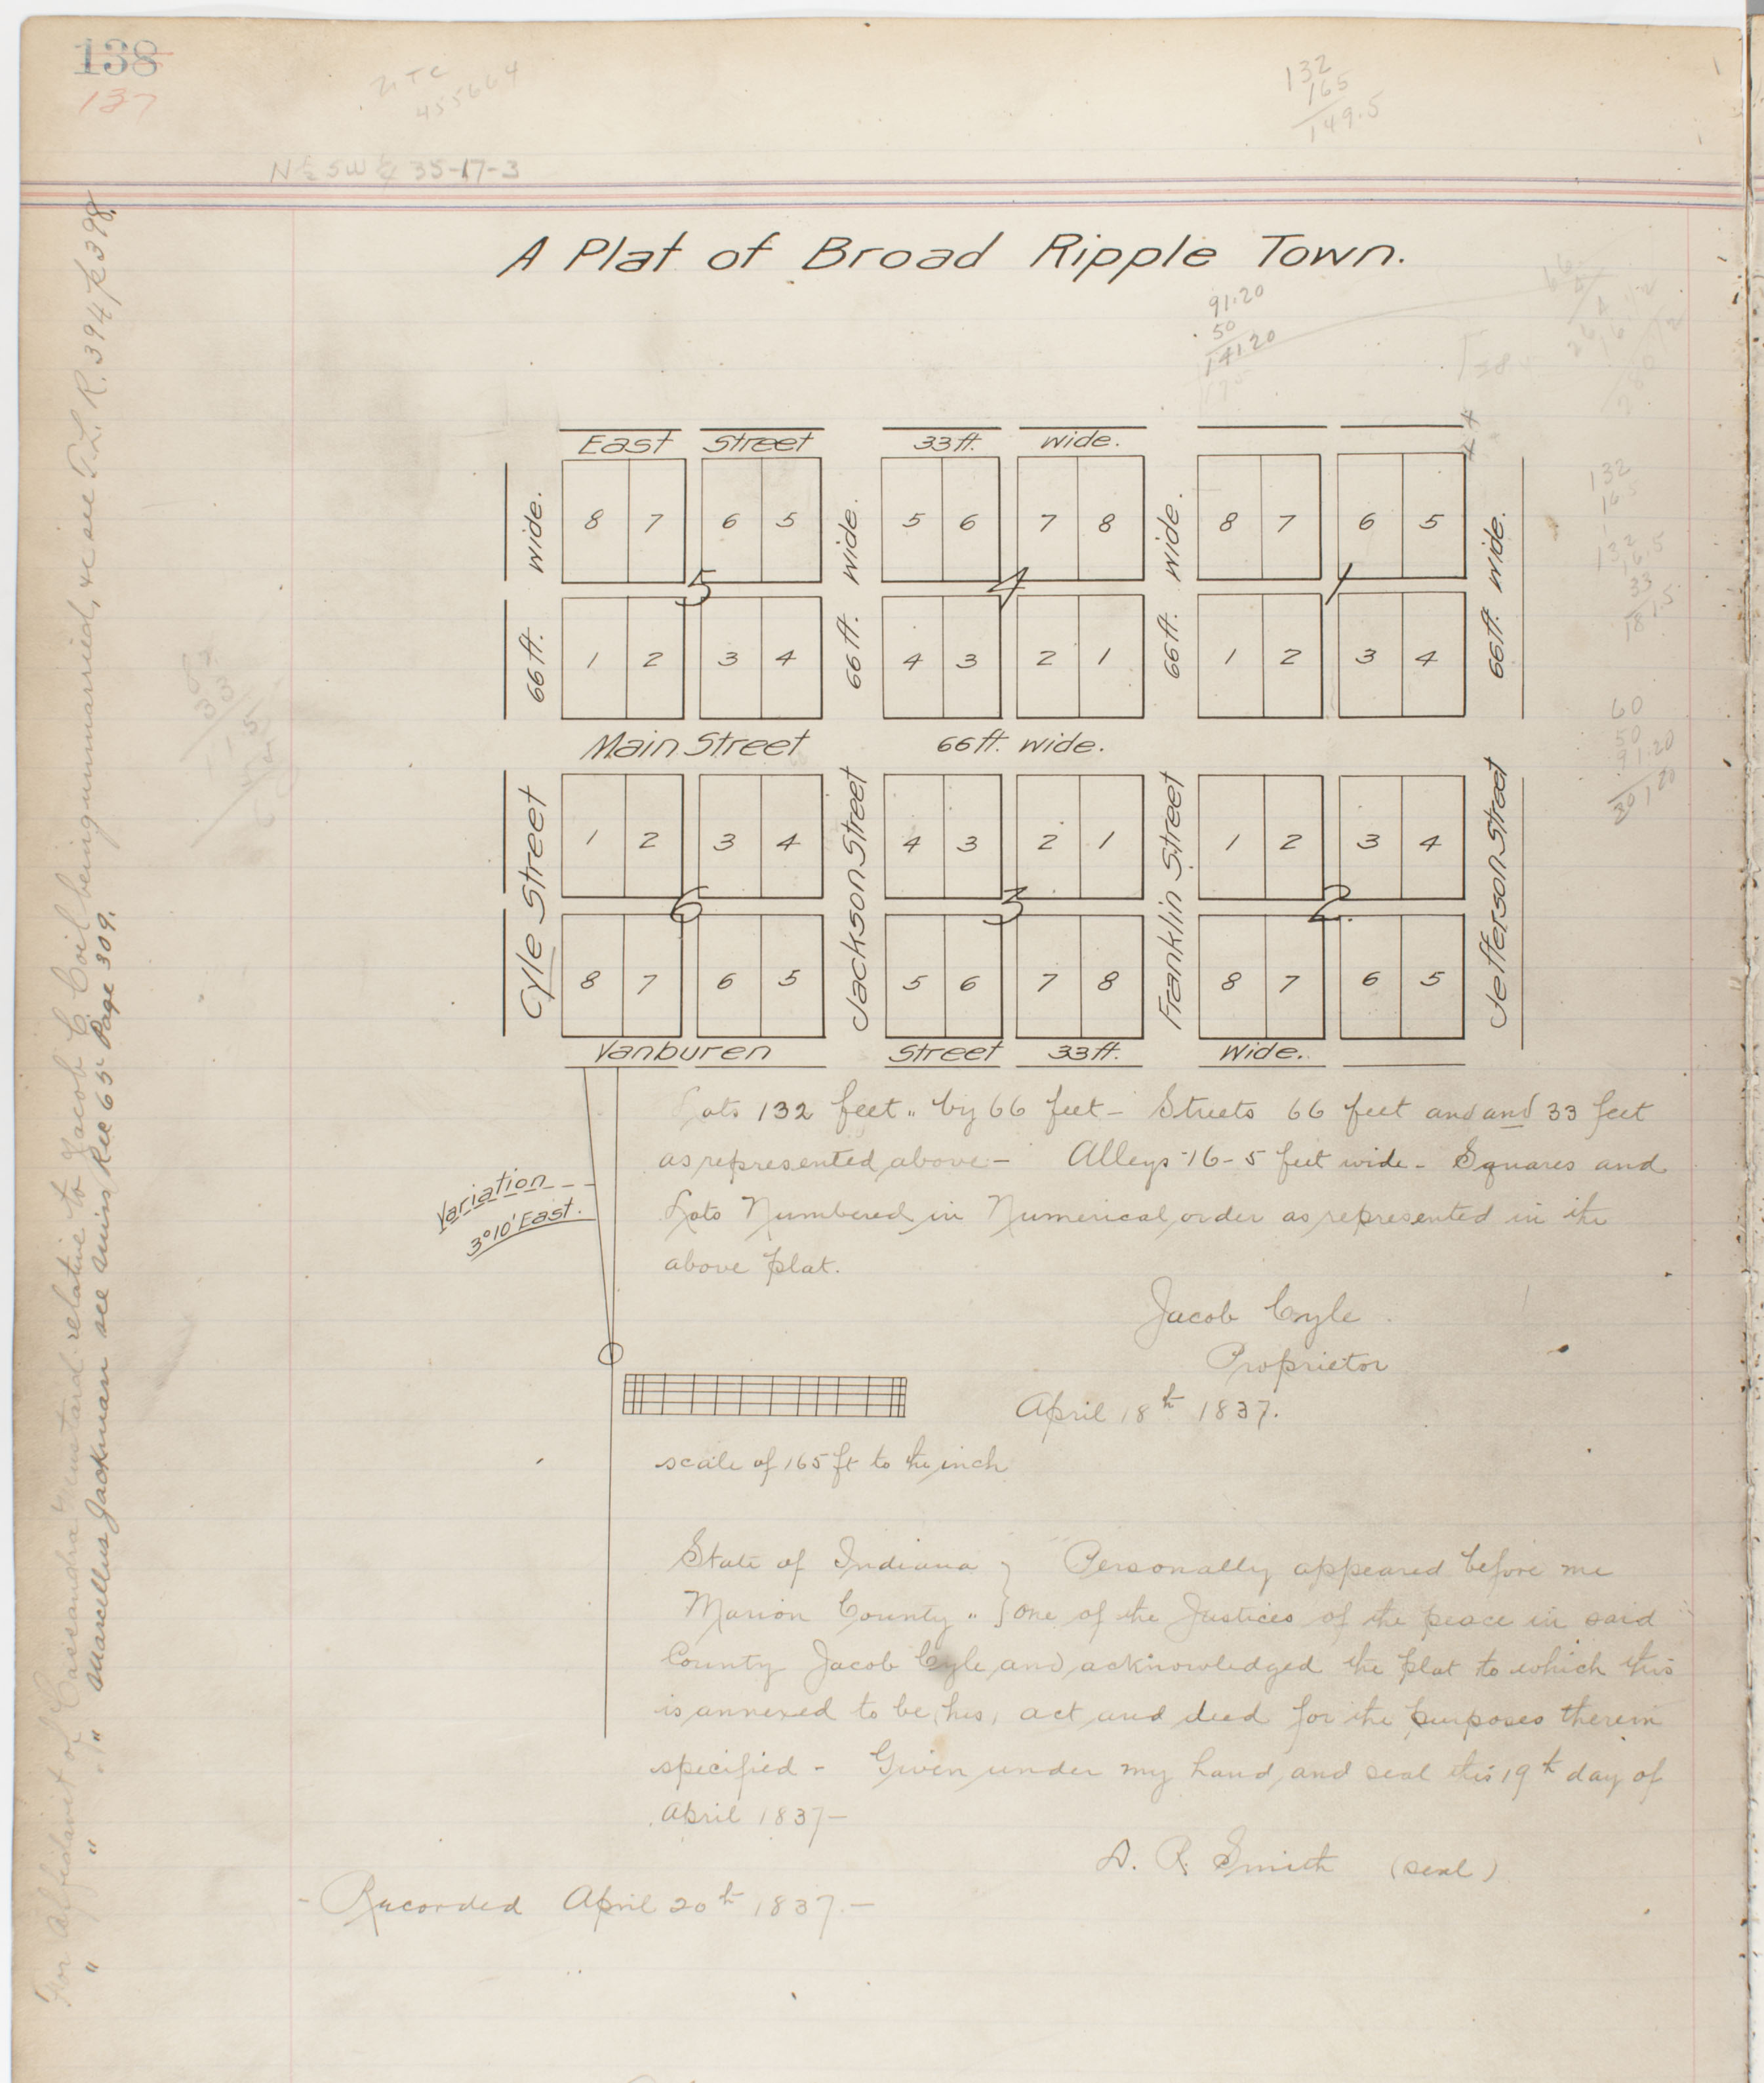 138
137
455664
132
165
149.5
N ½ SW ¼ 35-17-3
A Plat of Broad Ripple Town.
91.20
50
141.20
East Street 33 ft. wide.
8 7 6 5 5 6 7 8 8 7 6 5
wide. wide. wide. wide.
5 4 1
66 ft. 66 ft. 66 ft. 66 ft.
1 2 3 4 4 3 2 1 1 2 3 4
Main Street 66 ft. wide.
1 2 3 4 4 3 2 1 1 2 3 4
Cyle Street Jackson Street Franklin Street Jefferson Street
6 3 2
8 7 6 5 5 6 7 8 8 7 6 5
Vanburen Street 33 ft. Wide.
132
132
16.5
33
181.5
60
50
91.20
Lots 132 feet " by 66 feet - Streets 66 feet and and 33 feet
as represented above - Alleys 16-5 feet wide - Squares and
Lots Numbered in Numerical order as represented in the
above plat.
Variation
3°10' East.
Jacob Cyle
Proprietor
April 18th 1837.
scale of 165 ft to the inch
State of Indiana } Personally appeared before me
Marion County " } one of the Justices of the peace in said
County Jacob Cyle and acknowledged the plat to which this
is annexed to be his, act and deed for the purposes therein
specified - Given under my hand and seal this 19th day of
April 1837 -
D. R. Smith (seal)
- Recorded April 20th 1837. -
For Affidavit of Cassandra Mustard relative to Jacob C. Coil being unmarried, &c see T. L. R. 394 p 398.
" " " Marcellus Jackman see Misc Rec 65 Page 309.